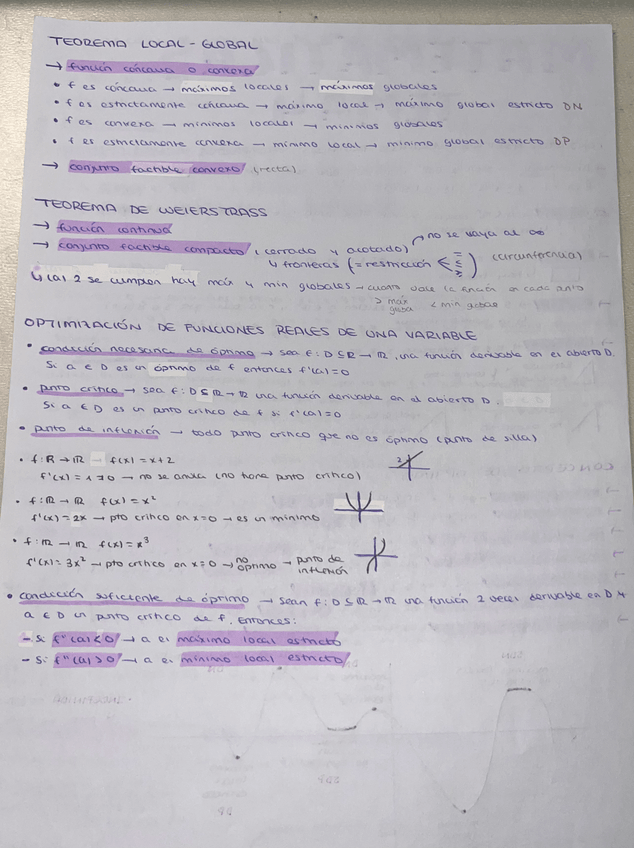 TEOREMA LOCAL - GLOBAL
→ función cóncava o convexa
• f es cóncava → máximos locales → máximos globales
• f es estrictamente cóncava → máximo local → máximo global estricto DN
• f es convexa → mínimos locales → mínimos globales
• f es estrictamente convexa → mínimo local → mínimo global estricto DP
→ conjunto factible convexo (recta)
TEOREMA DE WEIERSTRASS
→ función continua
→ conjunto factible compacto (cerrado y acotado) no se vaya al ∞
↳ fronteras (= restricción = ≤ ≥) (circunferencia)
↳ 2 se cumplen hay máx y mín globales → cuanto vale la función en cada
> máx < min
OPTIMIZACIÓN DE FUNCIONES REALES DE UNA VARIABLE
• condición necesaria de óptimo → sea f: D ⊆ R → R, una función derivable en el abierto D.
Si a ∈ D es un óptimo de f entonces f'(a)=0
• punto crítico → sea f: D ⊆ R → R una función derivable en el abierto D.
Si a ∈ D es un punto crítico de f si f'(a)=0
• punto de inflexión → todo punto crítico que no es óptimo (punto de silla)
• f: R → R f(x)=x+2
f'(x)=1≠0 → no se anula (no tiene punto crítico)
2
• f: R → R f(x)=x²
f'(x)=2x → pto crítico en x=0 → es un mínimo
• f: R → R f(x)=x³
f'(x)=3x² → pto crítico en x=0 → no óptimo → punto de inflexión
• condición suficiente de óptimo → sean f: D ⊆ R → R una función 2 veces derivable en D y
a ∈ D un punto crítico de f. Entonces:
- Si f''(a)<0 → a es máximo local estricto
- Si f''(a)>0 → a es mínimo local estricto